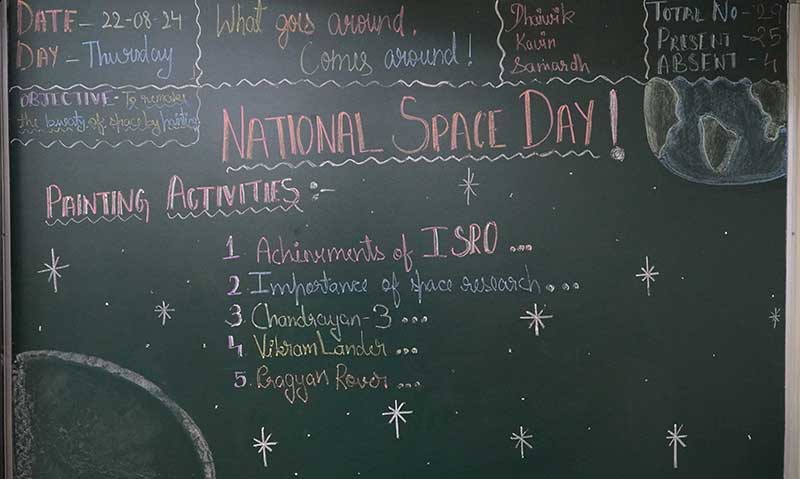 DATE - 22-08-24
DAY - Thursday
What goes around,
Comes around!
Dhaivik
Kavin
Samardh
TOTAL NO - 29
PRESENT - 25
ABSENT - 4
OBJECTIVE - To remake
the beauty of space by painting
NATIONAL SPACE DAY!
PAINTING ACTIVITIES :-
1 Achievments of ISRO ...
2 Importance of space research ...
3 Chandrayan-3 ...
4 Vikram Lander ...
5. Pragyan Rover ...